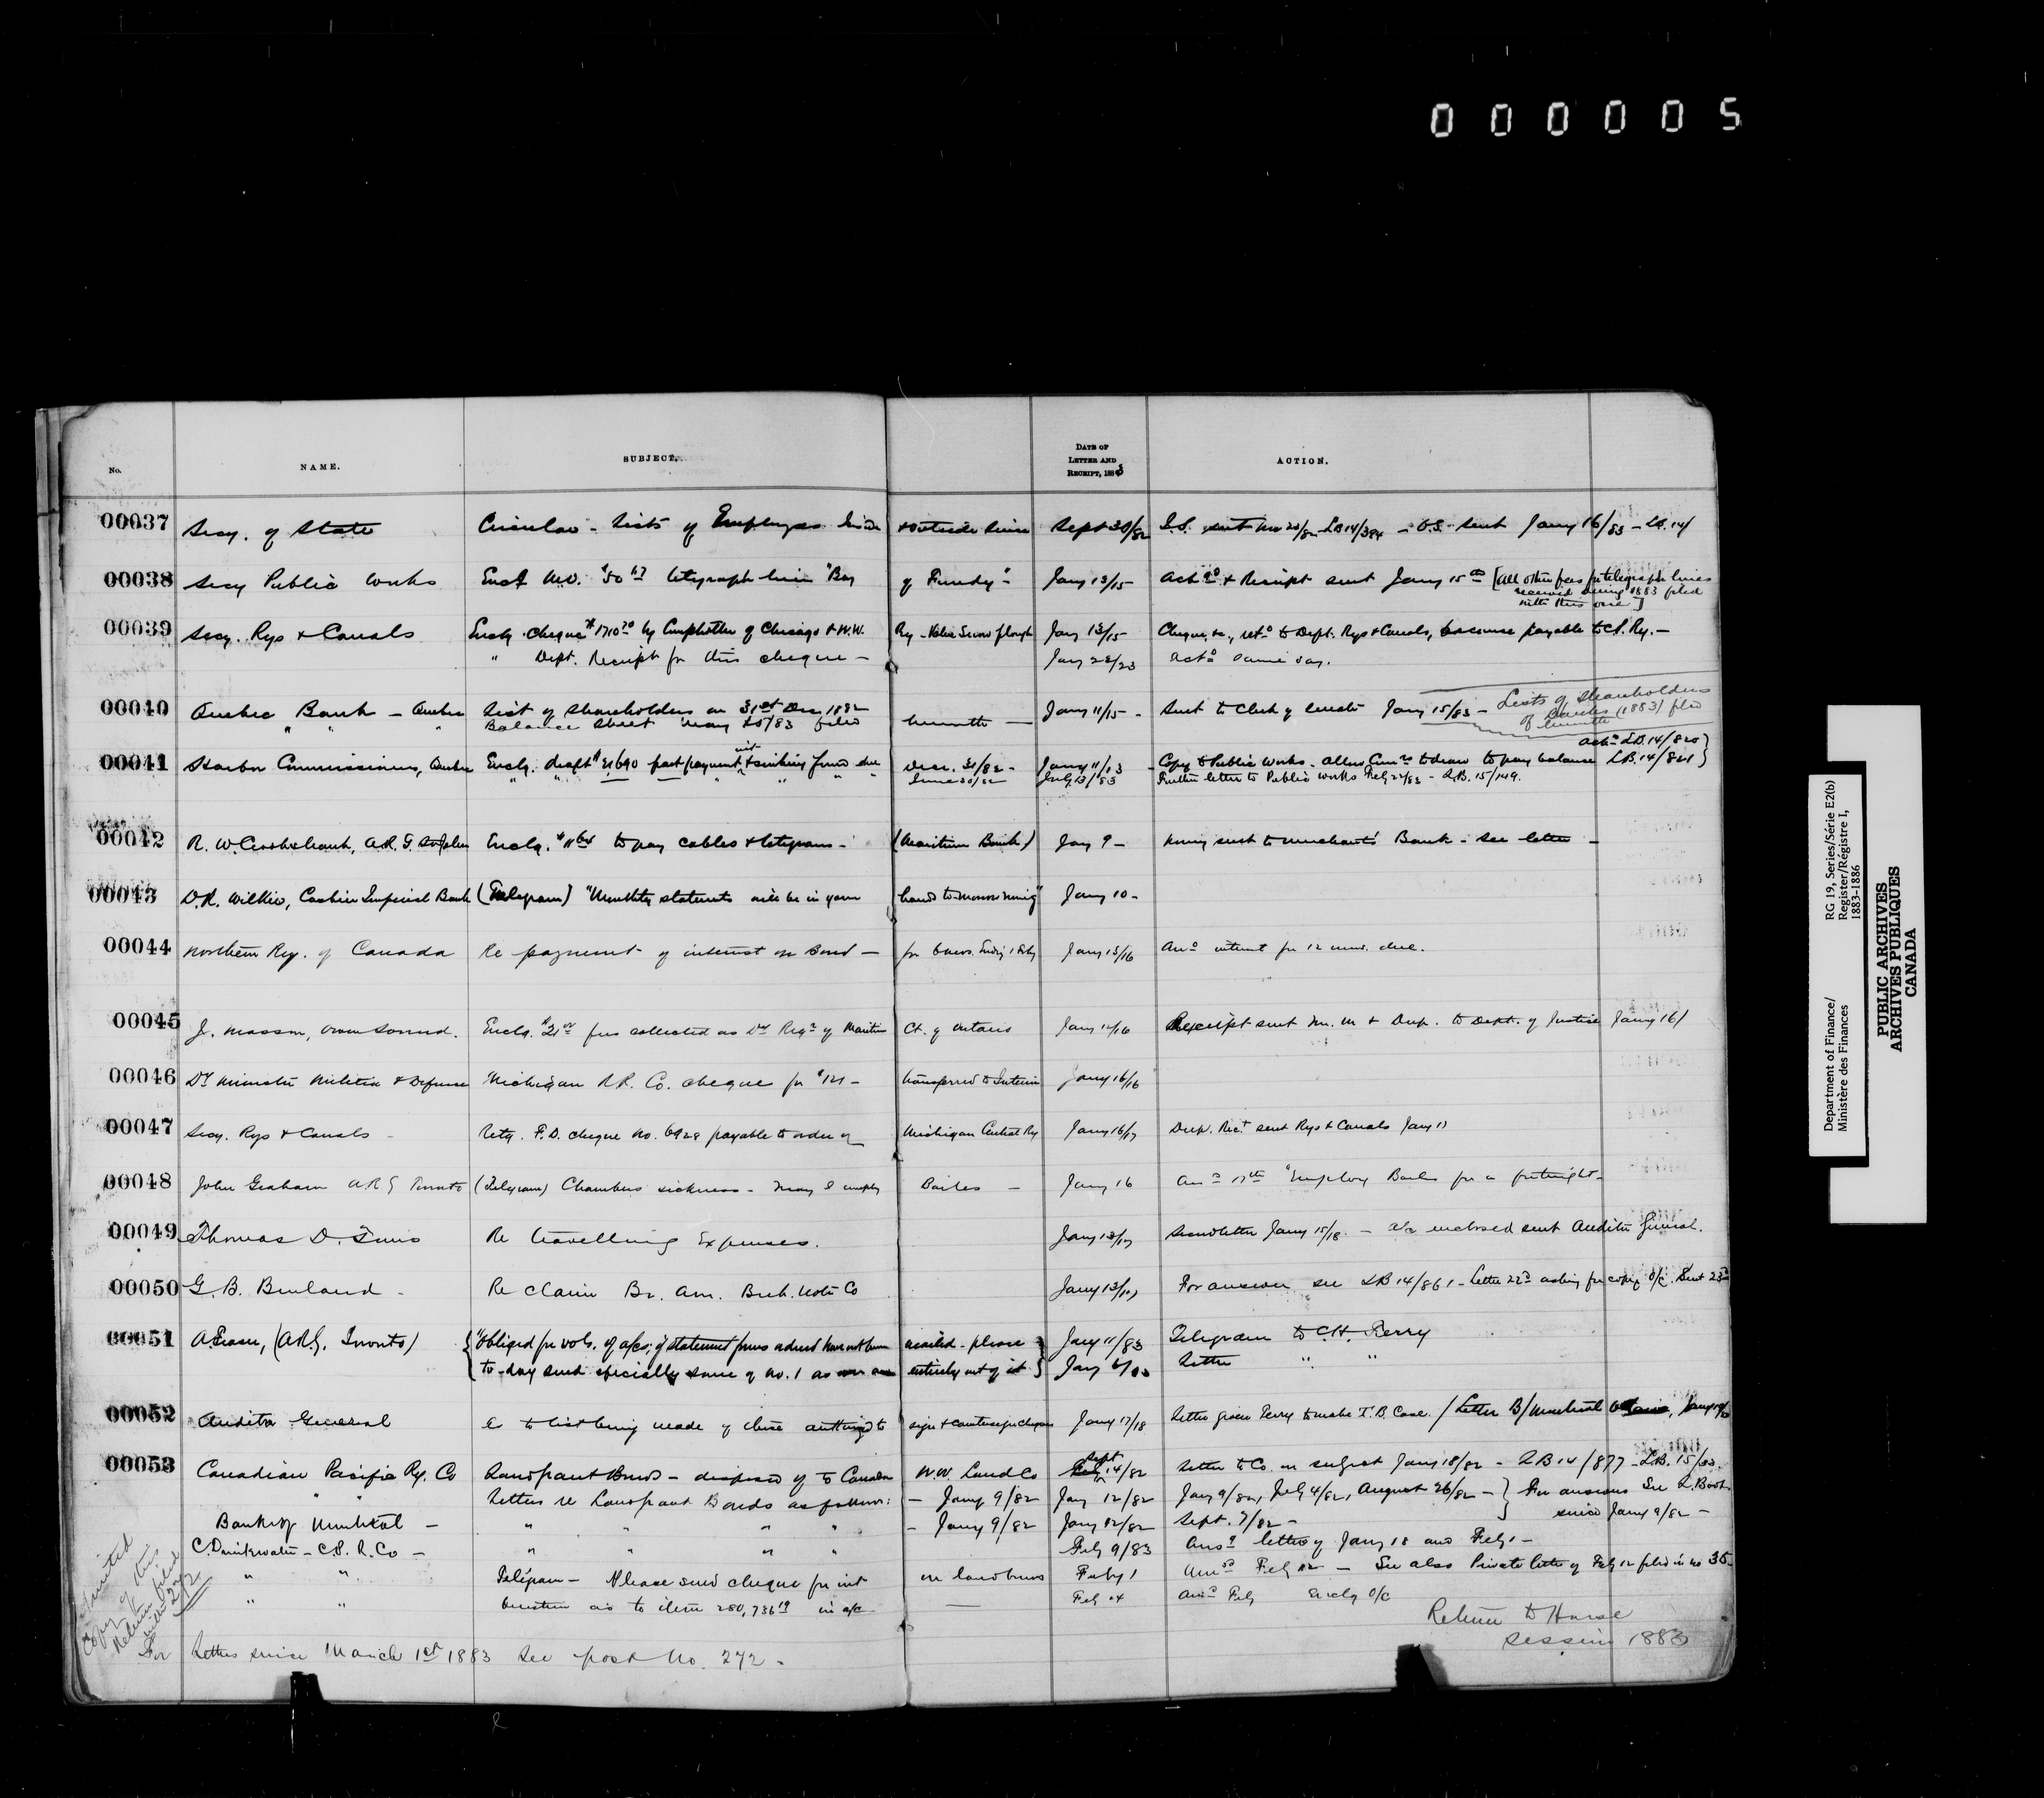 000005
No.
NAME.
SUBJECT.
DATE OF
LETTER AND
RECEIPT, 1883
ACTION.
00037 Secy. of State Circular - Lists of Employees Inside & outside Sept 30/82 I.S. sent Nov 20/82 LB 14/394 - O.S. sent Jany 16/83 - LB. 14/
00038 Secy Public Works telegraph line "Bay of Fundy" Jany 13/15 Ackd & Receipt sent Jany 15th [All other fees for telegraph lines
received during 1883 filed
with this one]
00039 Secy. Rys & Canals Enclg. cheque $1710 70 by of Chicago & N.W. Ry - Snow ploughs Jany 13/15 Cheque, &c., retd to Dept. Rys & Canals, because payable to Ry. -
" Dept. Receipt for this cheque - Jany 22/23 Ackd same day.
00040 Quebec Bank - Quebec List of Shareholders on 31st Dec 1882 Jany 11/15 - Sent to Clerk of Senate Jany 15/83 - Lists of Shareholders
of Banks (1883) filed
" " " Balance Sheet May 15/83 filed
Ackd LB. 14/820
00041 Harbor Commissioners, Quebec Enclg. draft $21690 part payment int & sinking fund due Decr. 31/82 - Jany 11/13 Copy to Public Works - allow Comrs to draw to pay balance LB. 14/821
" " " " " " June 30/82 July 13/83 Further letter to Public Works Feby 22/83 - LB. 15/149.
00042 R. W. Crookshank, A.R.G. St John Enclg. to pay cables & telegrams - (Maritime Bank) Jany 9 - money sent to Merchants' Bank - see letter -
00043 D.R. Wilkie, Cashier Imperial Bank (Telegram) "Monthly statements will be in your hands to-morrow morning" Jany 10 -
00044 Northern Ry. of Canada Re payment of interest on Bond - for 6 mos. ending 1 Feby Jany 15/16 Ansd interest for 12 mos. due.
00045 J. Masson, Owen Sound. Enclg. fees collected as Dy Regr of Maritime Ct. of Ontario Jany 14/16 Receipt sent Mr. M & Dup. to Dept. of Justice Jany 16/
00046 Dy Minister Militia & Defence Michigan R.R. Co. cheque for $121 - transferred to Interior Jany 16/16
00047 Secy. Rys & Canals - Retg. F.D. cheque No. 6928 payable to order of Michigan Central Ry Jany 16/17 Dup. Rect sent Rys & Canals Jany 17
00048 John Graham A.R.G Toronto (Telegram) Chambers sickness - May I employ Jany 16 Ansd 17th "Employ for a fortnight -
00049 Thomas D. Re travelling Expenses. Jany 13/17 letter Jany 15/18 - a/c enclosed sent Auditor General.
00050 G. B. Burland - Re claim Br. Am. Bk. Note Co Jany 13/17 For answer see LB 14/861 - Letter 22d asking for copy O/C. Sent 23d
00051 A Fraser, (A.R.G. Toronto) "Obliged for vols. of a/cs; if statement forms have not been mailed - please Jany 11/83 Telegram to C.H. Perry
to-day send specially some of No. 1 as we are entirely out of it Jany Letter " "
00052 Auditor General to list being made of those authorized to sign & countersign cheques Jany 17/18 Letter given Perry to make T.B. Case. / Letter B/Montreal
00053 Canadian Pacific Ry. Co Land grant Bonds - disposed of to Canada N.W. Land Co Sept 14/82 Letter to Co. on subject Jany 18/82 - LB 14/877 - LB. 15/
" " Letters re Land grant Bonds as follows: - Jany 9/82 Jany 12/82 Jany 9/82, July 4/82, August 26/82 - } For answers See L. Book
Bank of Montreal - " " " " - Jany 9/82 Jany 12/82 Sept. 7/82 - since Jany 9/82 -
C. Drinkwater - C.P.R. Co - " " " " Feby 9/83 Ansd letter of Jany 18 and Feby 1 -
" " Telegram - Please send cheque for int on land bonds Feby 1 Ansd Feby 12 - See also Private letter of Feby 12 filed in no 35 -
" " Question as to item 280,736 19 in a/c - Feby 14 Ansd Feby Enclg O/C
Return to House
session 1883
Copy of this
Return filed
with 272
For Letters since March 1st 1883 See post No. 272 -
Department of Finance/
Ministère des Finances
RG 19, Series/Série E2(b)
Register/Régistre I,
1883-1886
PUBLIC ARCHIVES
ARCHIVES PUBLIQUES
CANADA